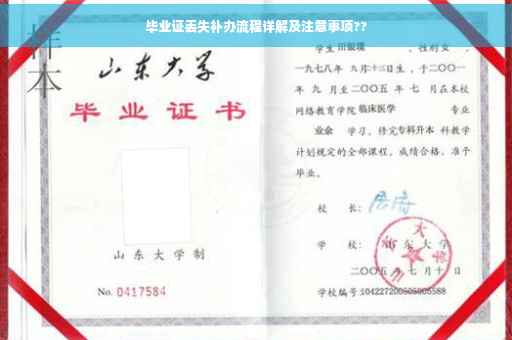 毕业证丢失补办流程详解及注意事项??
样本
山东大学
毕业证书
山东大学制
No. 0417584
学生 田俶瑛 ，性别 女 ，
一九七八年 九月十二日生，于二〇〇一
年 九 月至二〇〇五 年 七 月在本校
网络教育学院 临床医学 专业
业余 学习，修完专科升本 科教学
计划规定的全部课程，成绩合格，准予
毕业。
校 长：
学 校： 山东大学
二〇〇五 年 七 月 十 日
学校编号：104227200505005588